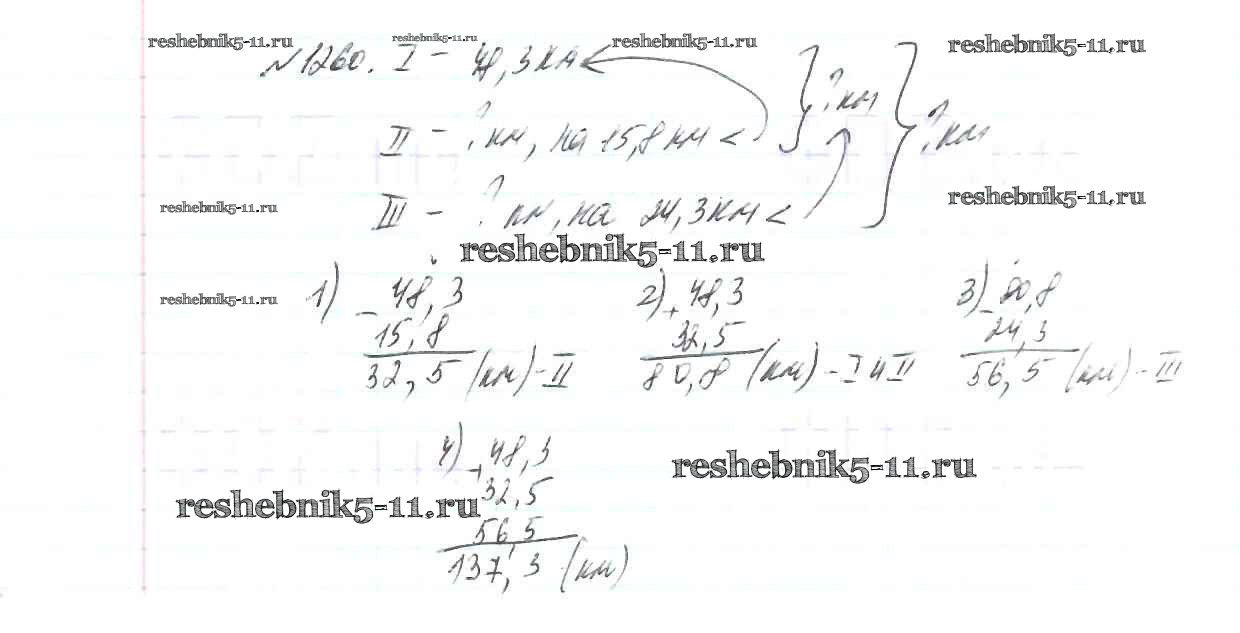 reshebnik5-11.ru reshebnik5-11.ru reshebnik5-11.ru reshebnik5-11.ru
№1260. I - 48,3 км
? км ? км
II - ? км, на 15,8 км <
reshebnik5-11.ru
reshebnik5-11.ru III - ? км, на 24,3 км <
reshebnik5-11.ru
reshebnik5-11.ru
1) - 48,3 2) + 48,3 3) - 80,8
15,8 32,5 24,3
32,5 (км) - II 80,8 (км) - I и II 56,5 (км) - III
4) + 48,3
reshebnik5-11.ru
reshebnik5-11.ru 32,5
56,5
137,3 (км)